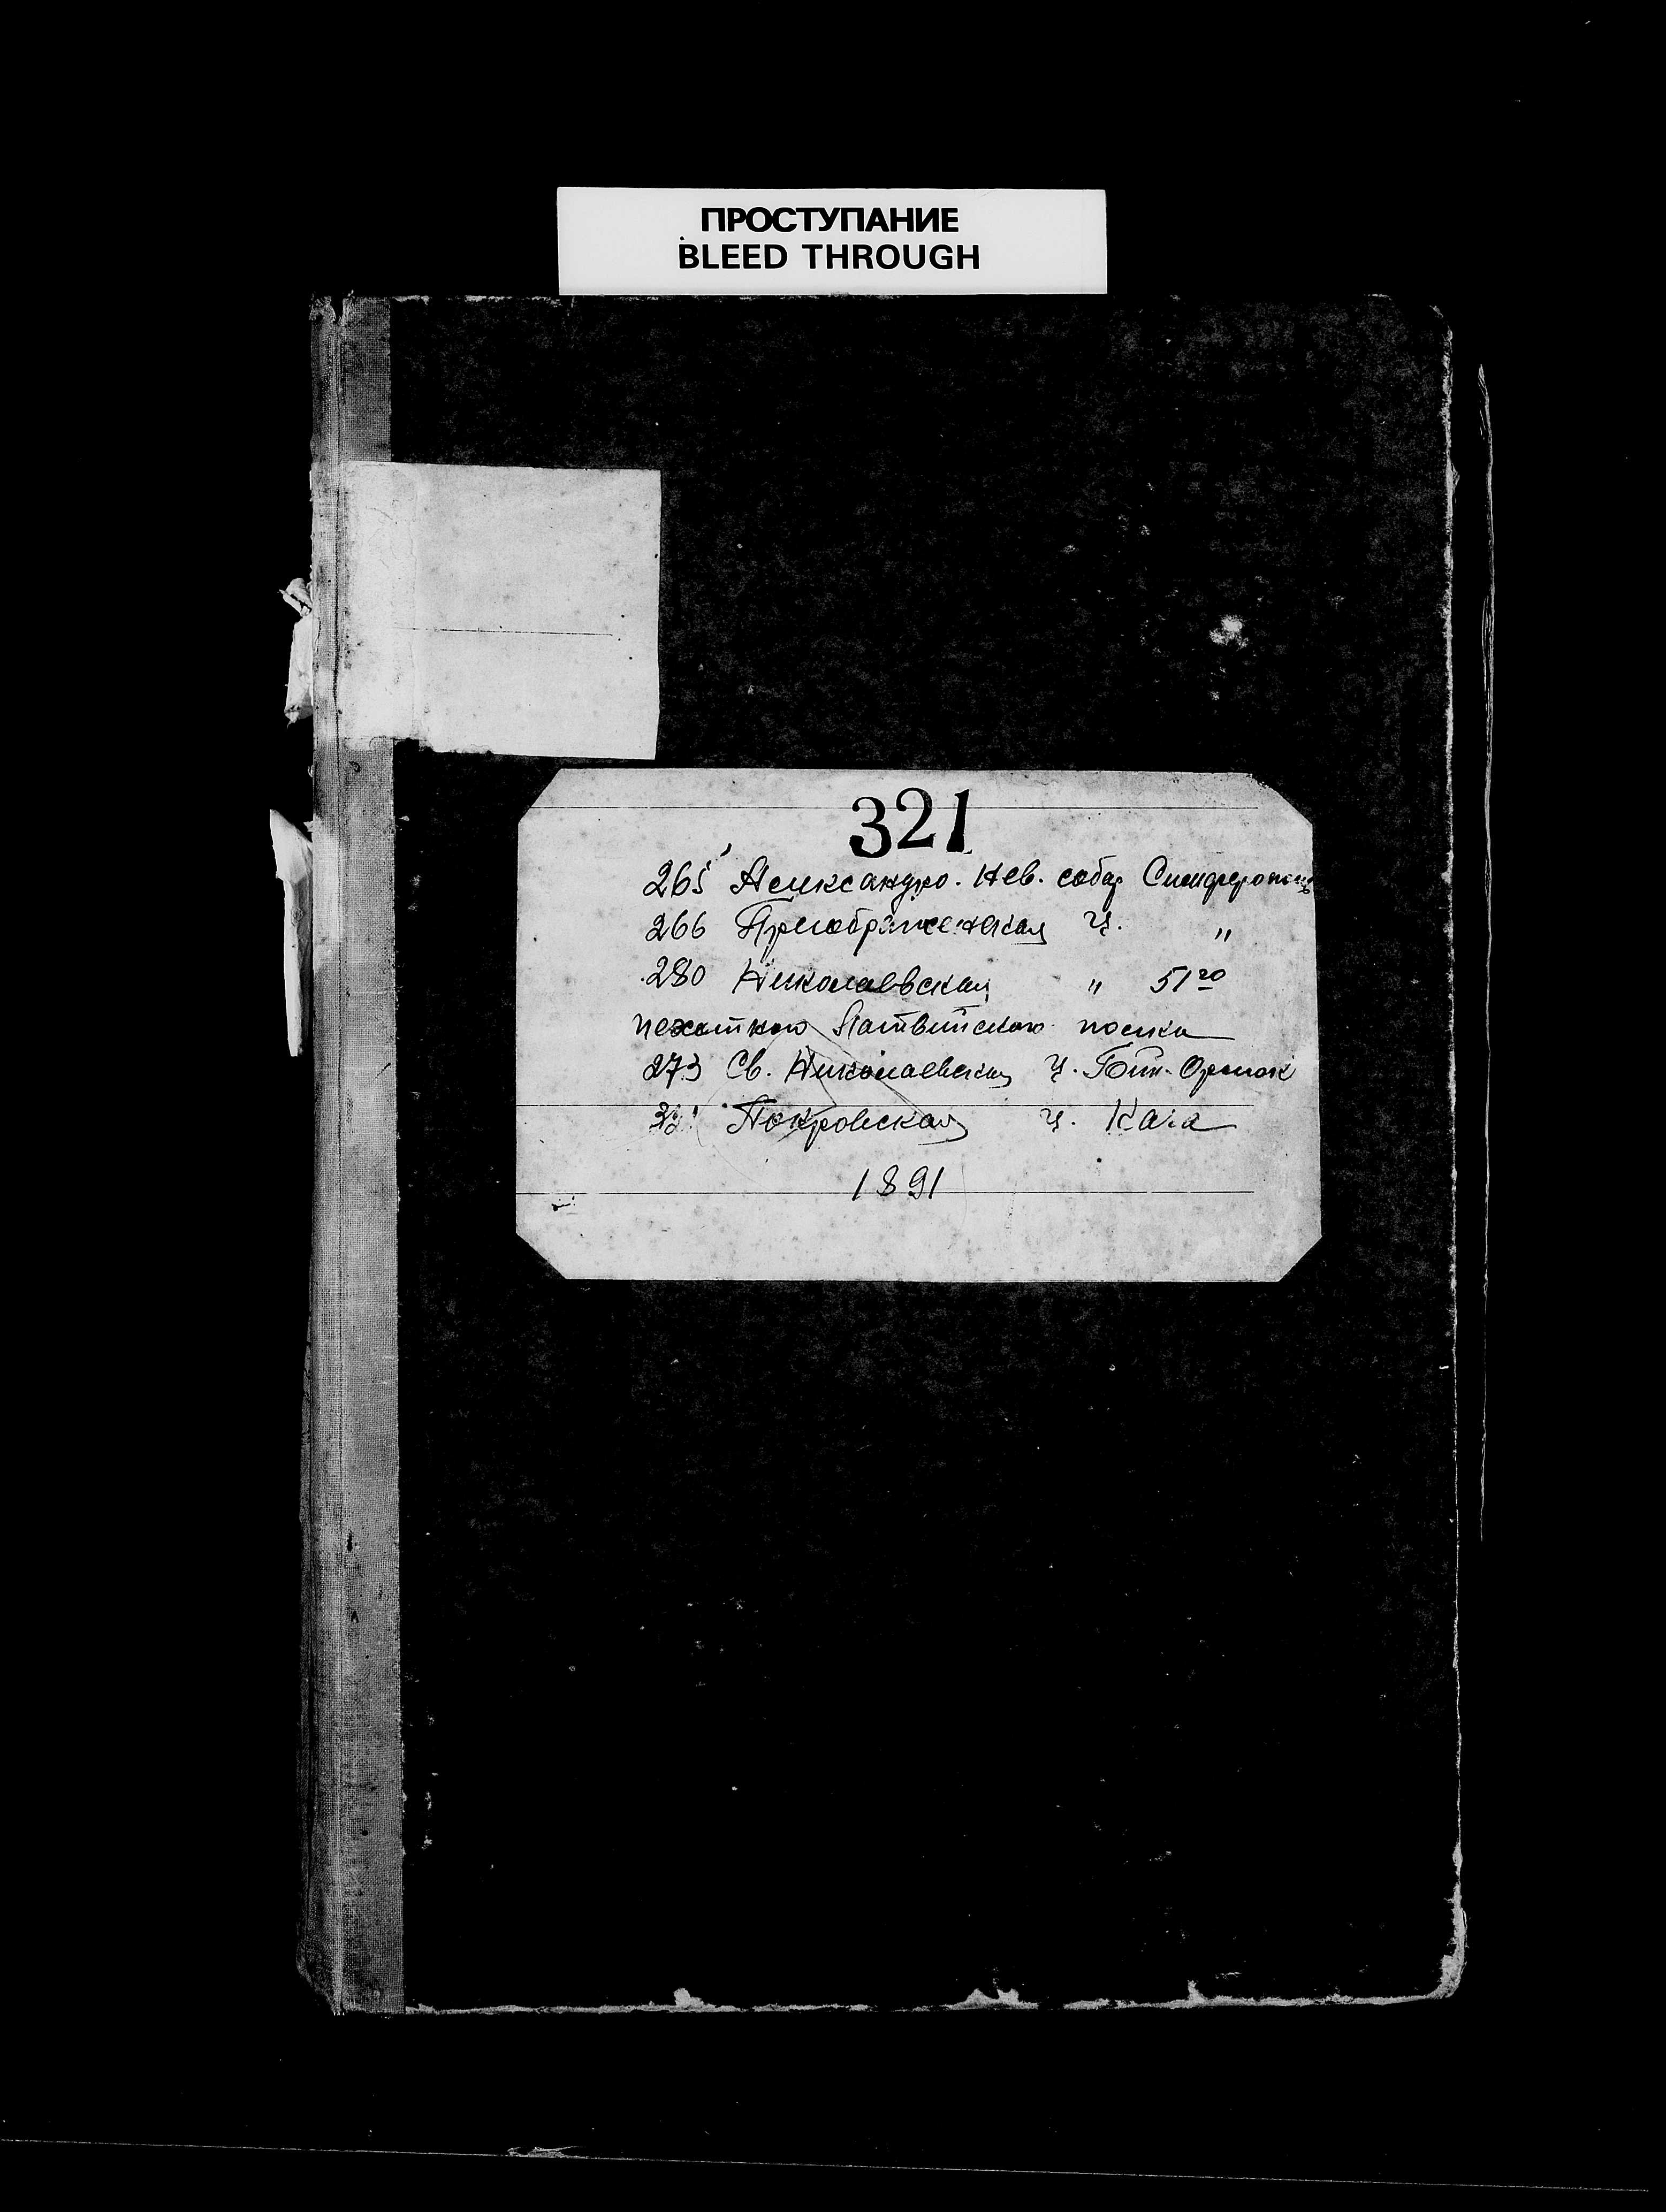 ПРОСТУПАНИЕ
BLEED THROUGH
321
265 Александро. Нев. собор Симферополь
266 Преображенская ц. "
280 Николаевская " 51го
пехотного Литовского полка
273 Св. Николаевская ц. Бик-Орлюк
Покровская ц. Кага
1891